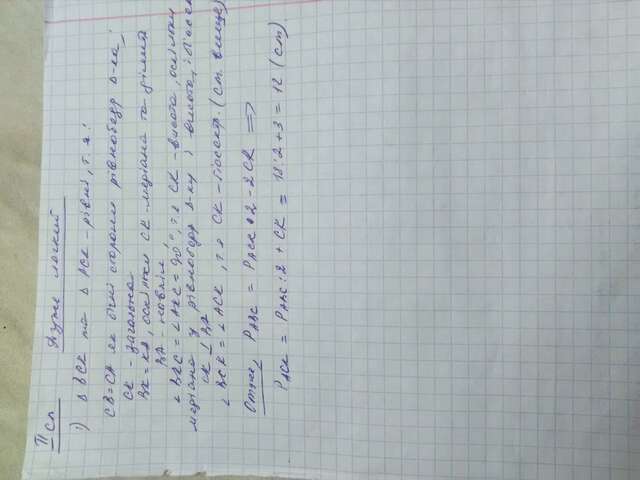 II сп. Дуже легкий
1) Δ BCK та Δ ACK - рівні, т.я.:
CB=CA як бічні сторони рівнобедр Δ-ка;
CK - загальна
BK=KA, оскільки CK медіана та ділить
BA навпіл;
∠BKC=∠AKC=90°, т.я CK - висота, оскільки
медіана у рівнобедр Δ-ку і висота, і бісек
CK ⊥ BA
∠BCK=∠ACK, т.я CK - бісектр. (см. вище)
Отже, P ABC = P ACK • 2 - 2CK ⟹
P ACK = P ABC : 2 + CK = 18:2+3 = 12 (см)